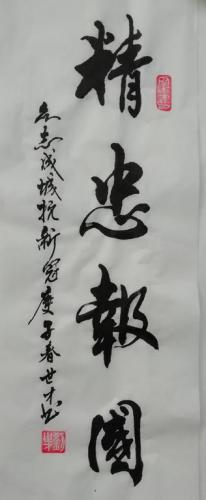 精忠報國
众志成城抗新冠庚子春世才书